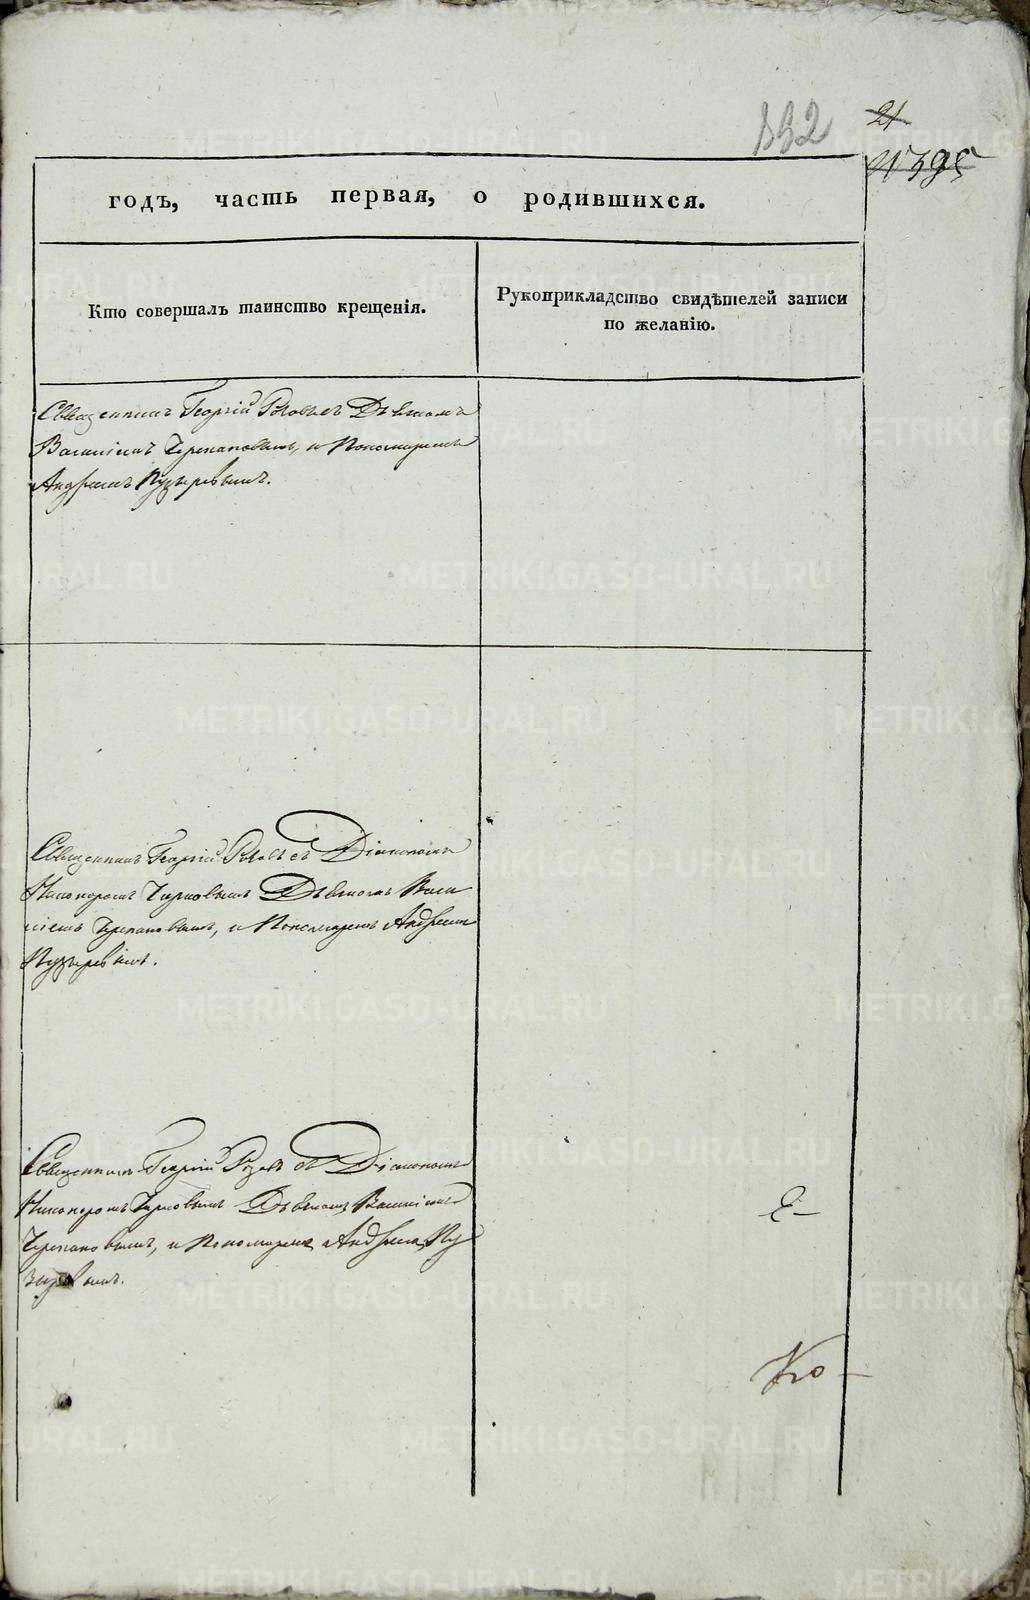 332
21
годъ, часть первая, о родившихся.
Кто совершалъ таинство крещенія.
Рукоприкладство свидѣтелей записи
по желанію.
Священникъ Георгій съ Дьячкомъ
Василіемъ Черепановымъ, и Пономаремъ
Андреемъ Пузыревымъ.
Священникъ Георгій съ Діакономъ
Никонромъ Дьячкомъ Васи
ліемъ Черепановымъ, и Пономаремъ Андреем
Пузыревымъ.
Священникъ Георгій съ Діакономъ
Дьячкомъ Василіемъ
Черепановымъ, и Пономаремъ Андреем Пу
зыревымъ.
Ко-
METRIKI.GASO-URAL.RU